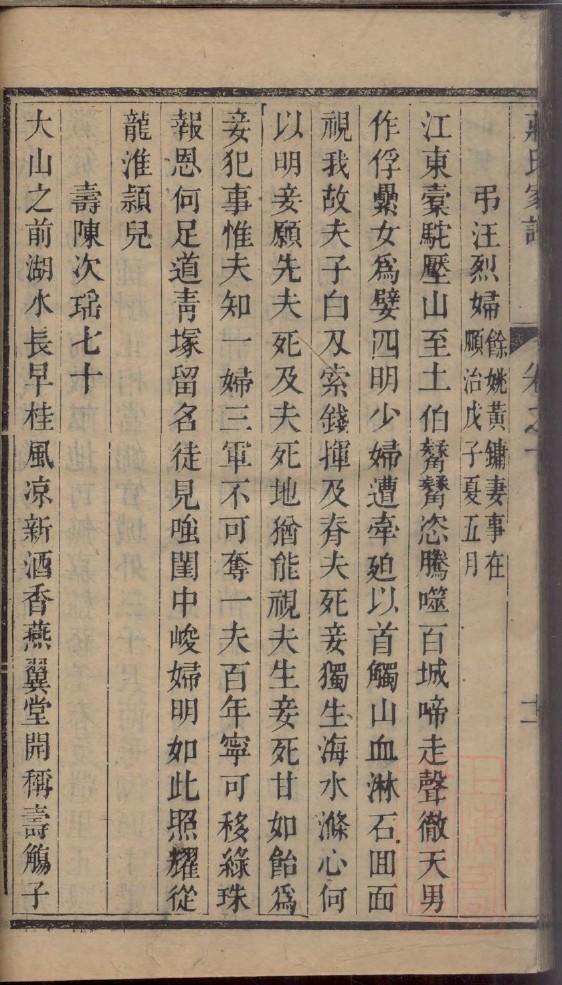 弔汪烈婦餘姚黃鏽妻事在
順治戊子夏五月
江東槖駝壓山至土伯觺觺恣騰噬百城啼走聲徹天男
作俘纍女爲嬖四明少婦遭牽廹以首觸山血淋石囬面
視我故夫子白刃索錢揮及脊夫死妾獨生海水滌心何
以明妾願先夫死及夫死地猶能視夫生妾死甘如飴爲
妾犯事惟夫知一婦三軍不可奪一夫百年寧可移綠珠
報恩何足道靑塚留名徒見嗤閨中峻婦明如此照耀從
龍淮潁兒
壽陳次瑶七十
大山之前湖水長早桂風凉新酒香燕翼堂開稱壽觴子